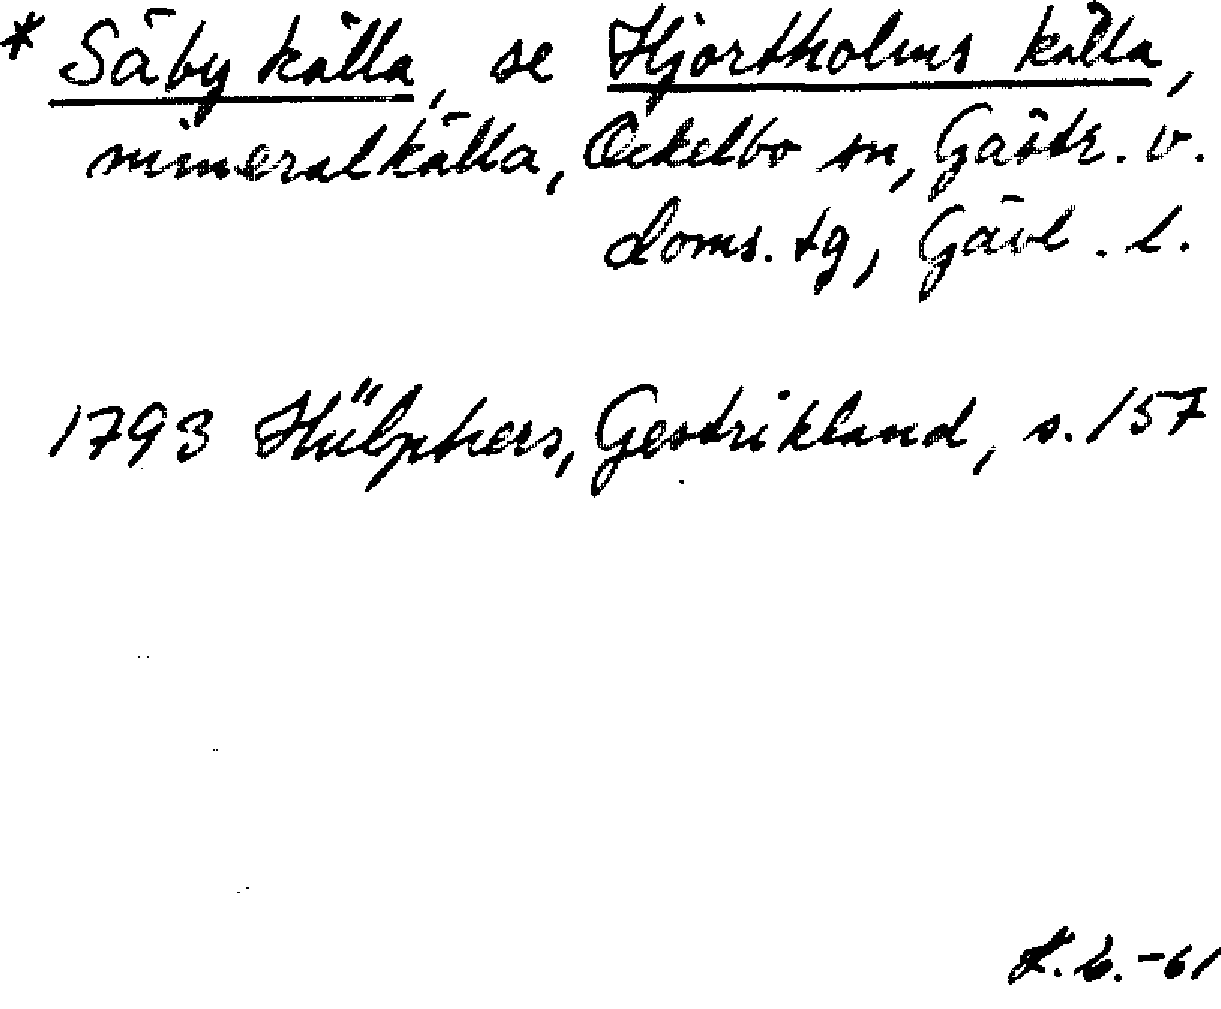 * Säby källa, se Hjortholms källa,
mineralkälla, Ockelbo sn, Gästr. v.
doms. tg, Gävl. l.
1793 Hülphers, Gestrikland, s. 157
-61